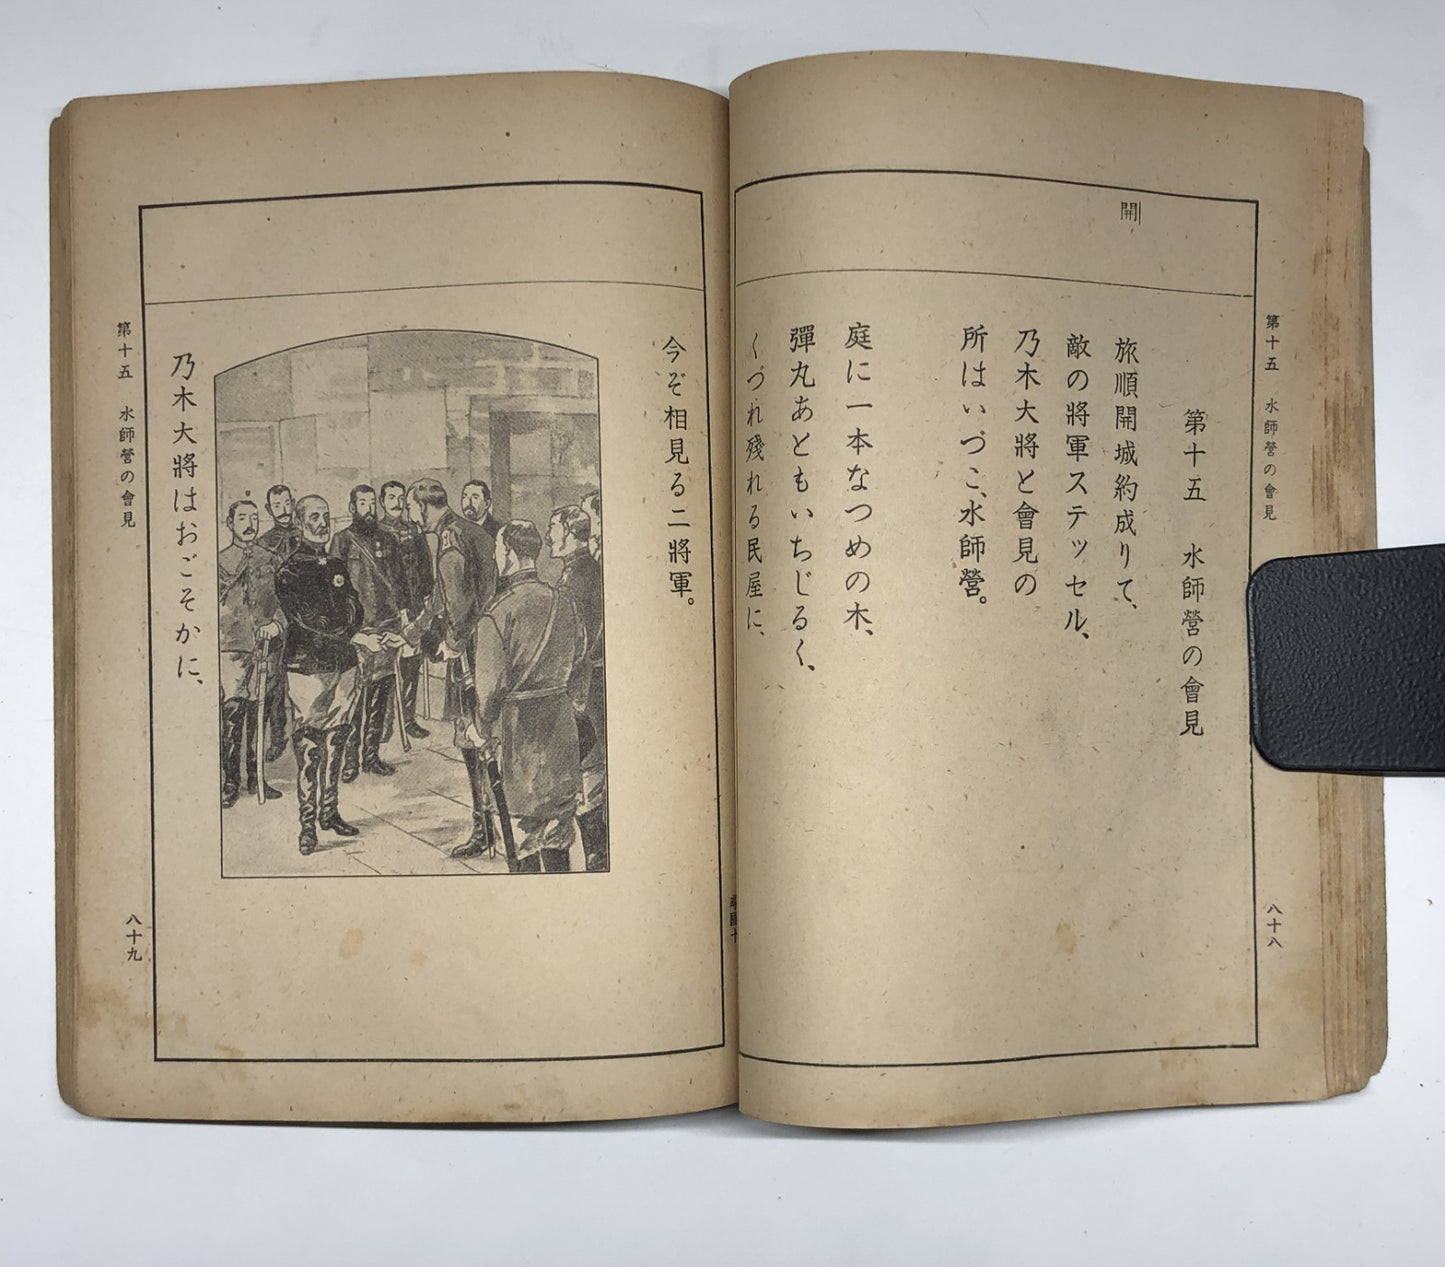 開
第十五 水師營の會見
八十八
第十五 水師營の會見
旅順開城約成りて、
敵の將軍ステッセル、
乃木大將と會見の
所はいづこ、水師營。
庭に一本なつめの木、
彈丸あともいちじるく、
くづれ殘れる民屋に、
今ぞ相見る二將軍。
乃木大將はおごそかに、
第十五 水師營の會見
八十九